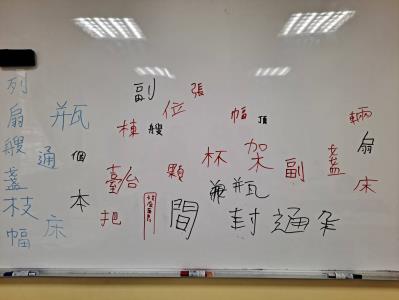 列
扇
艘
盞
枝
幅
瓶
通
床
個
本
副
棟
艘
位
張
臺
把
顆
間
幅
頂
杯
架
瓶
副
盞
封
通
輛
扇
床